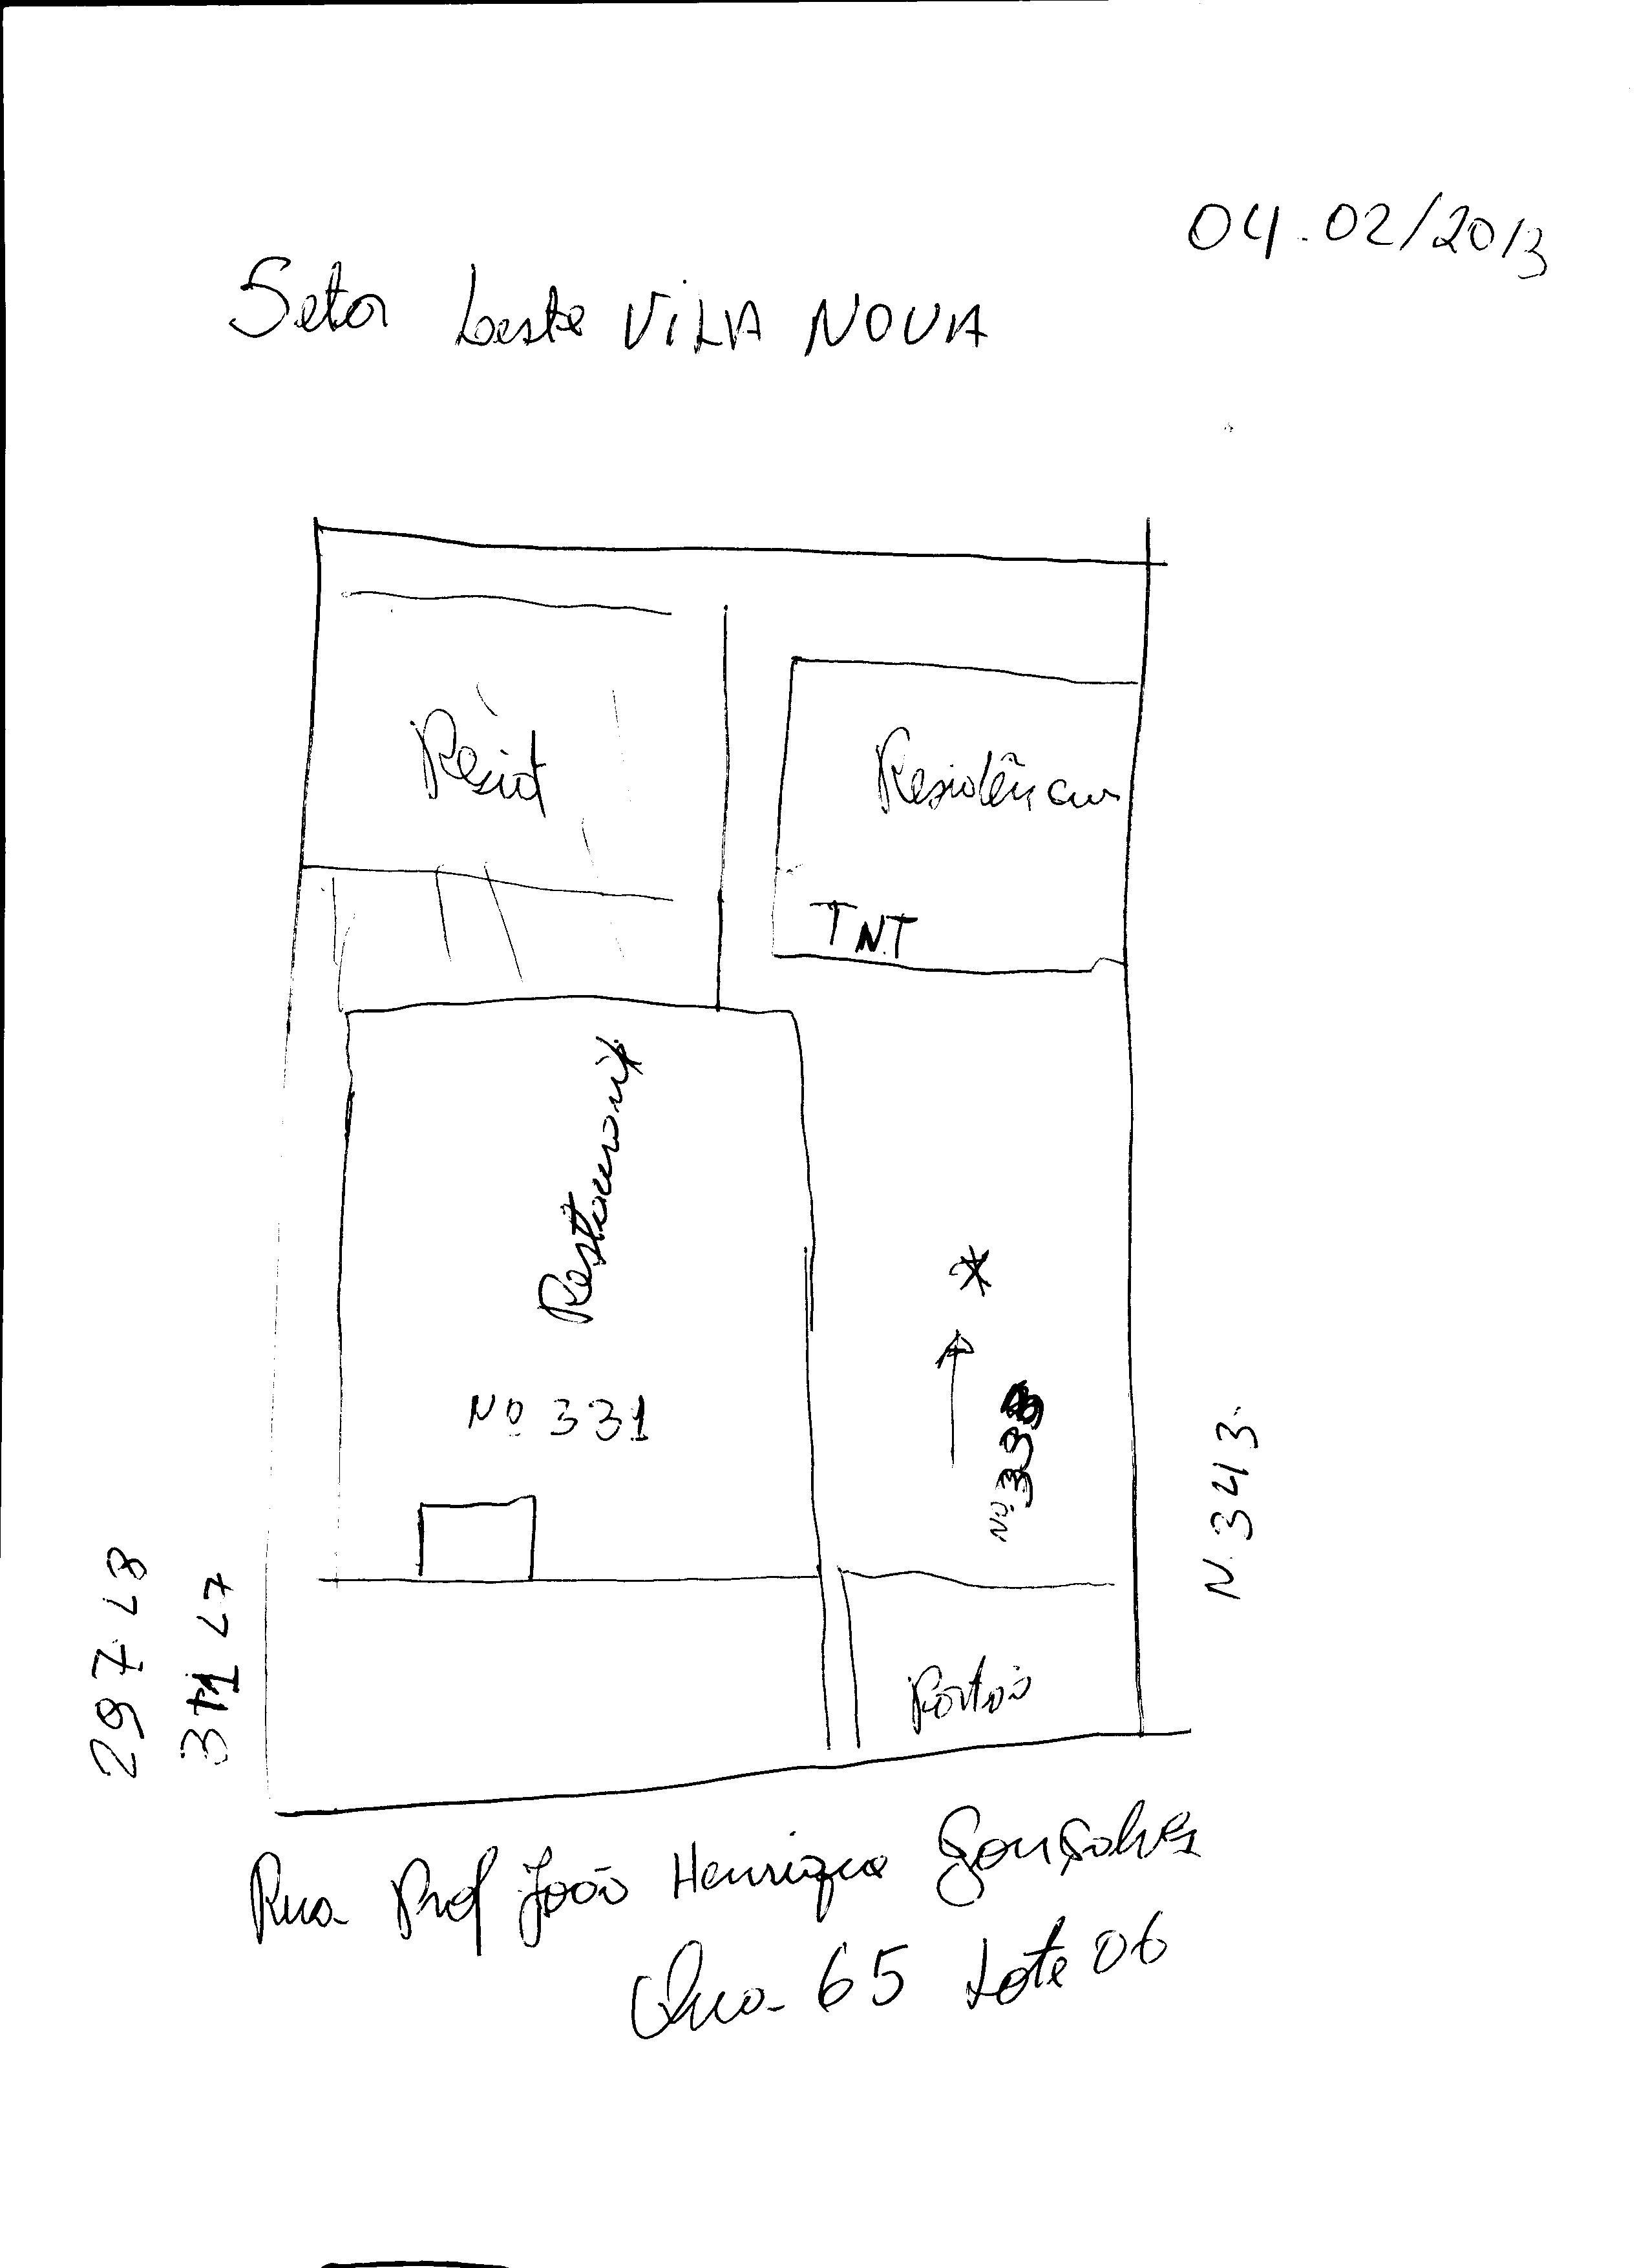 04.02/2013
Setor Leste VILA NOVA
Resid
Residência
TNT
Restaurante
Nº 331
N. 343
297 L8
L7
Portão
Rua Prof João Henrique Gonçalves
Qua- 65 Lote 06